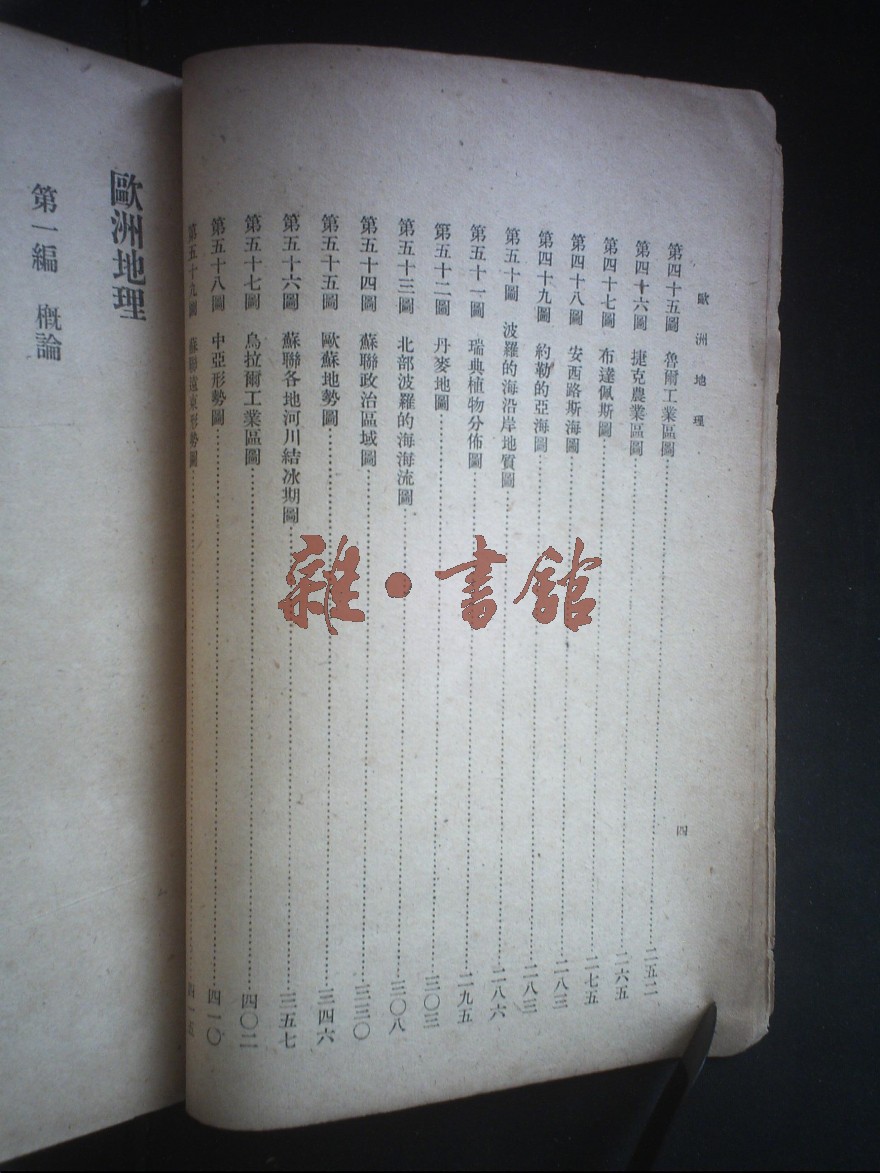 歐洲地理
四
第四十五圖 魯爾工業區圖 二五二
第四十六圖 捷克農業區圖 二六五
第四十七圖 布達佩斯圖 二七五
第四十八圖 安西路斯海圖 二八三
第四十九圖 約勒的亞海圖 二八三
第五十圖 波羅的海沿岸地質圖 二八六
第五十一圖 瑞典植物分佈圖 二九五
第五十二圖 丹麥地圖 三〇三
第五十三圖 北部波羅的海海流圖 三〇八
第五十四圖 蘇聯政治區域圖 三三〇
第五十五圖 歐蘇地勢圖 三四六
第五十六圖 蘇聯各地河川結冰期圖 三五七
第五十七圖 烏拉爾工業區圖 四〇二
第五十八圖 中亞形勢圖 四一〇
第五十九圖 蘇聯遠東形勢圖 四一五
歐洲地理
第一編 概論
雜·書館